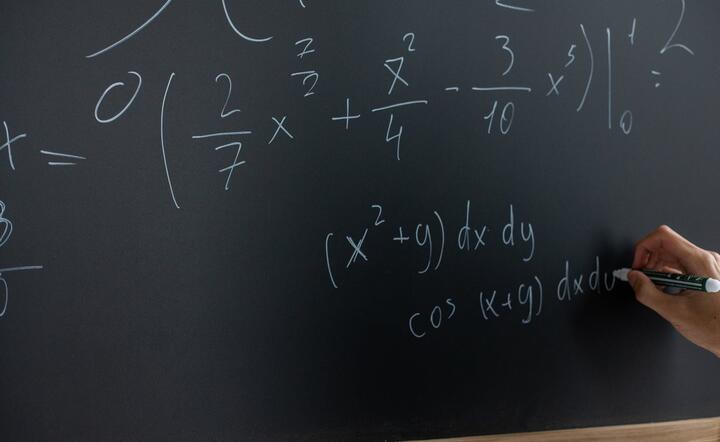 0 (2/7 x^7/2 + x^2/4 - 3/10 x^5)|_0^1 = 2
x =
(x^2+y) dx dy
cos (x+y) dx d